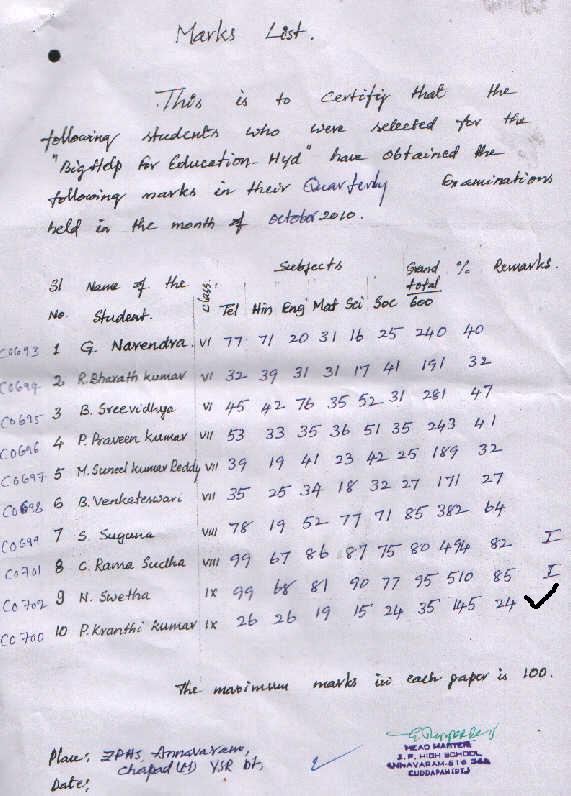 Marks List.
This is to certify that the
following students who were selected for the
"Big Help for Education - Hyd" have obtained the
following marks in their Quarterly Examinations
held in the month of october 2010.
Sl Name of the class: Subjects Grand % Remarks.
No. Student. Tel Hin Eng Mat Sci Soc total 600
C0693 1 G. Narendra. VI 77 71 20 31 16 25 240 40
C0694 2 R. Bharath kumar VI 32 39 31 31 17 41 191 32
C0695 3 B. Sreevidhya VI 45 42 76 35 52 31 281 47
C0696 4 P. Praveen kumar VII 53 33 35 36 51 35 243 41
C0697 5 M. Suneel kumar Reddy VII 39 19 41 23 42 25 189 32
C0698 6 B. Venkateswari VII 35 25 34 18 32 27 171 27
C0699 7 S. Suguna VIII 78 19 52 77 71 85 382 64
C0701 8 C. Rama Sudha VIII 99 67 86 87 75 80 494 82 I
C0702 9 N. Swetha IX 99 68 81 90 77 95 510 85 I
C0700 10 P. Kranthi kumar IX 26 26 19 15 24 35 145 24
The maximum marks in each paper is 100.
Place: ZPHS Annavaram,
chapad YSR Dt,
Date:
HEAD MASTER
Z.P. HIGH SCHOOL
ANNAVARAM-516 362
CUDDAPAH(DT)